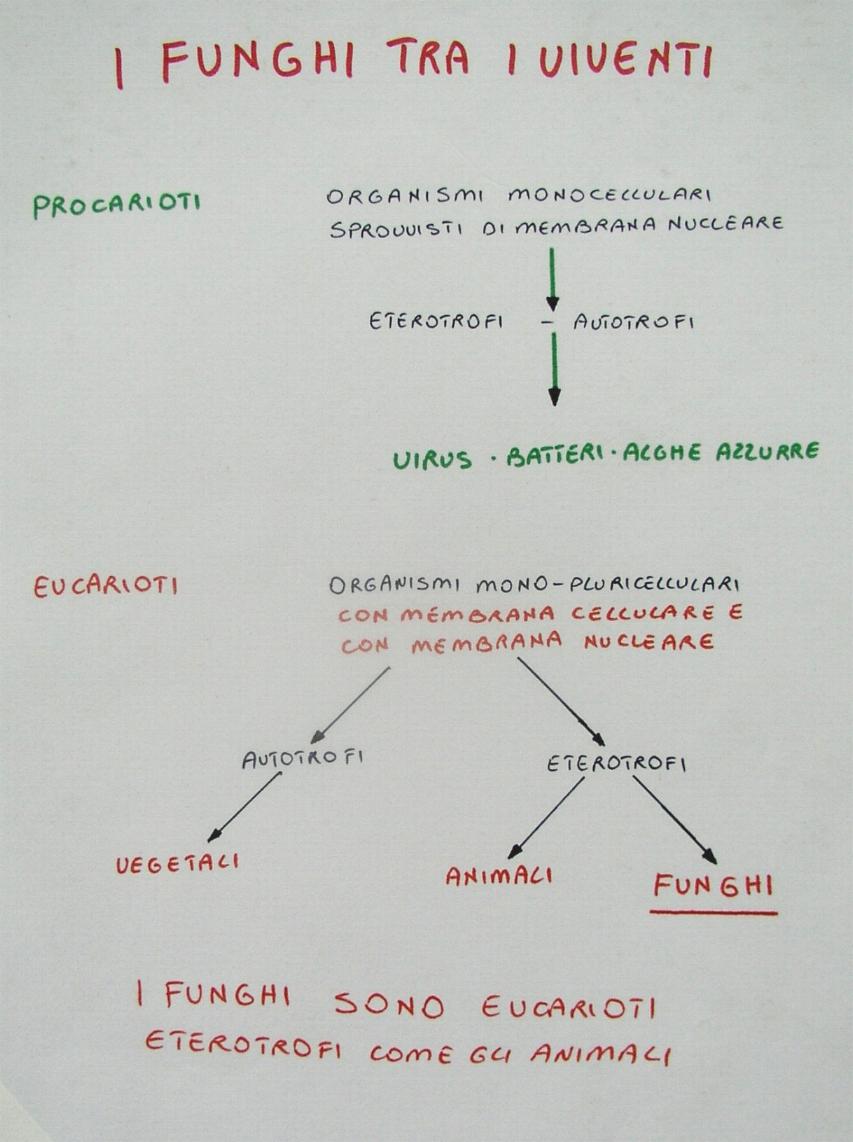 I FUNGHI TRA I VIVENTI
PROCARIOTI
ORGANISMI MONOCELLULARI
SPROVVISTI DI MEMBRANA NUCLEARE
ETEROTROFI - AUTOTROFI
VIRUS · BATTERI · ALGHE AZZURRE
EUCARIOTI
ORGANISMI MONO-PLURICELLULARI
CON MEMBRANA CELLULARE E
CON MEMBRANA NUCLEARE
AUTOTROFI
ETEROTROFI
VEGETALI
ANIMALI
FUNGHI
I FUNGHI SONO EUCARIOTI
ETEROTROFI COME GLI ANIMALI